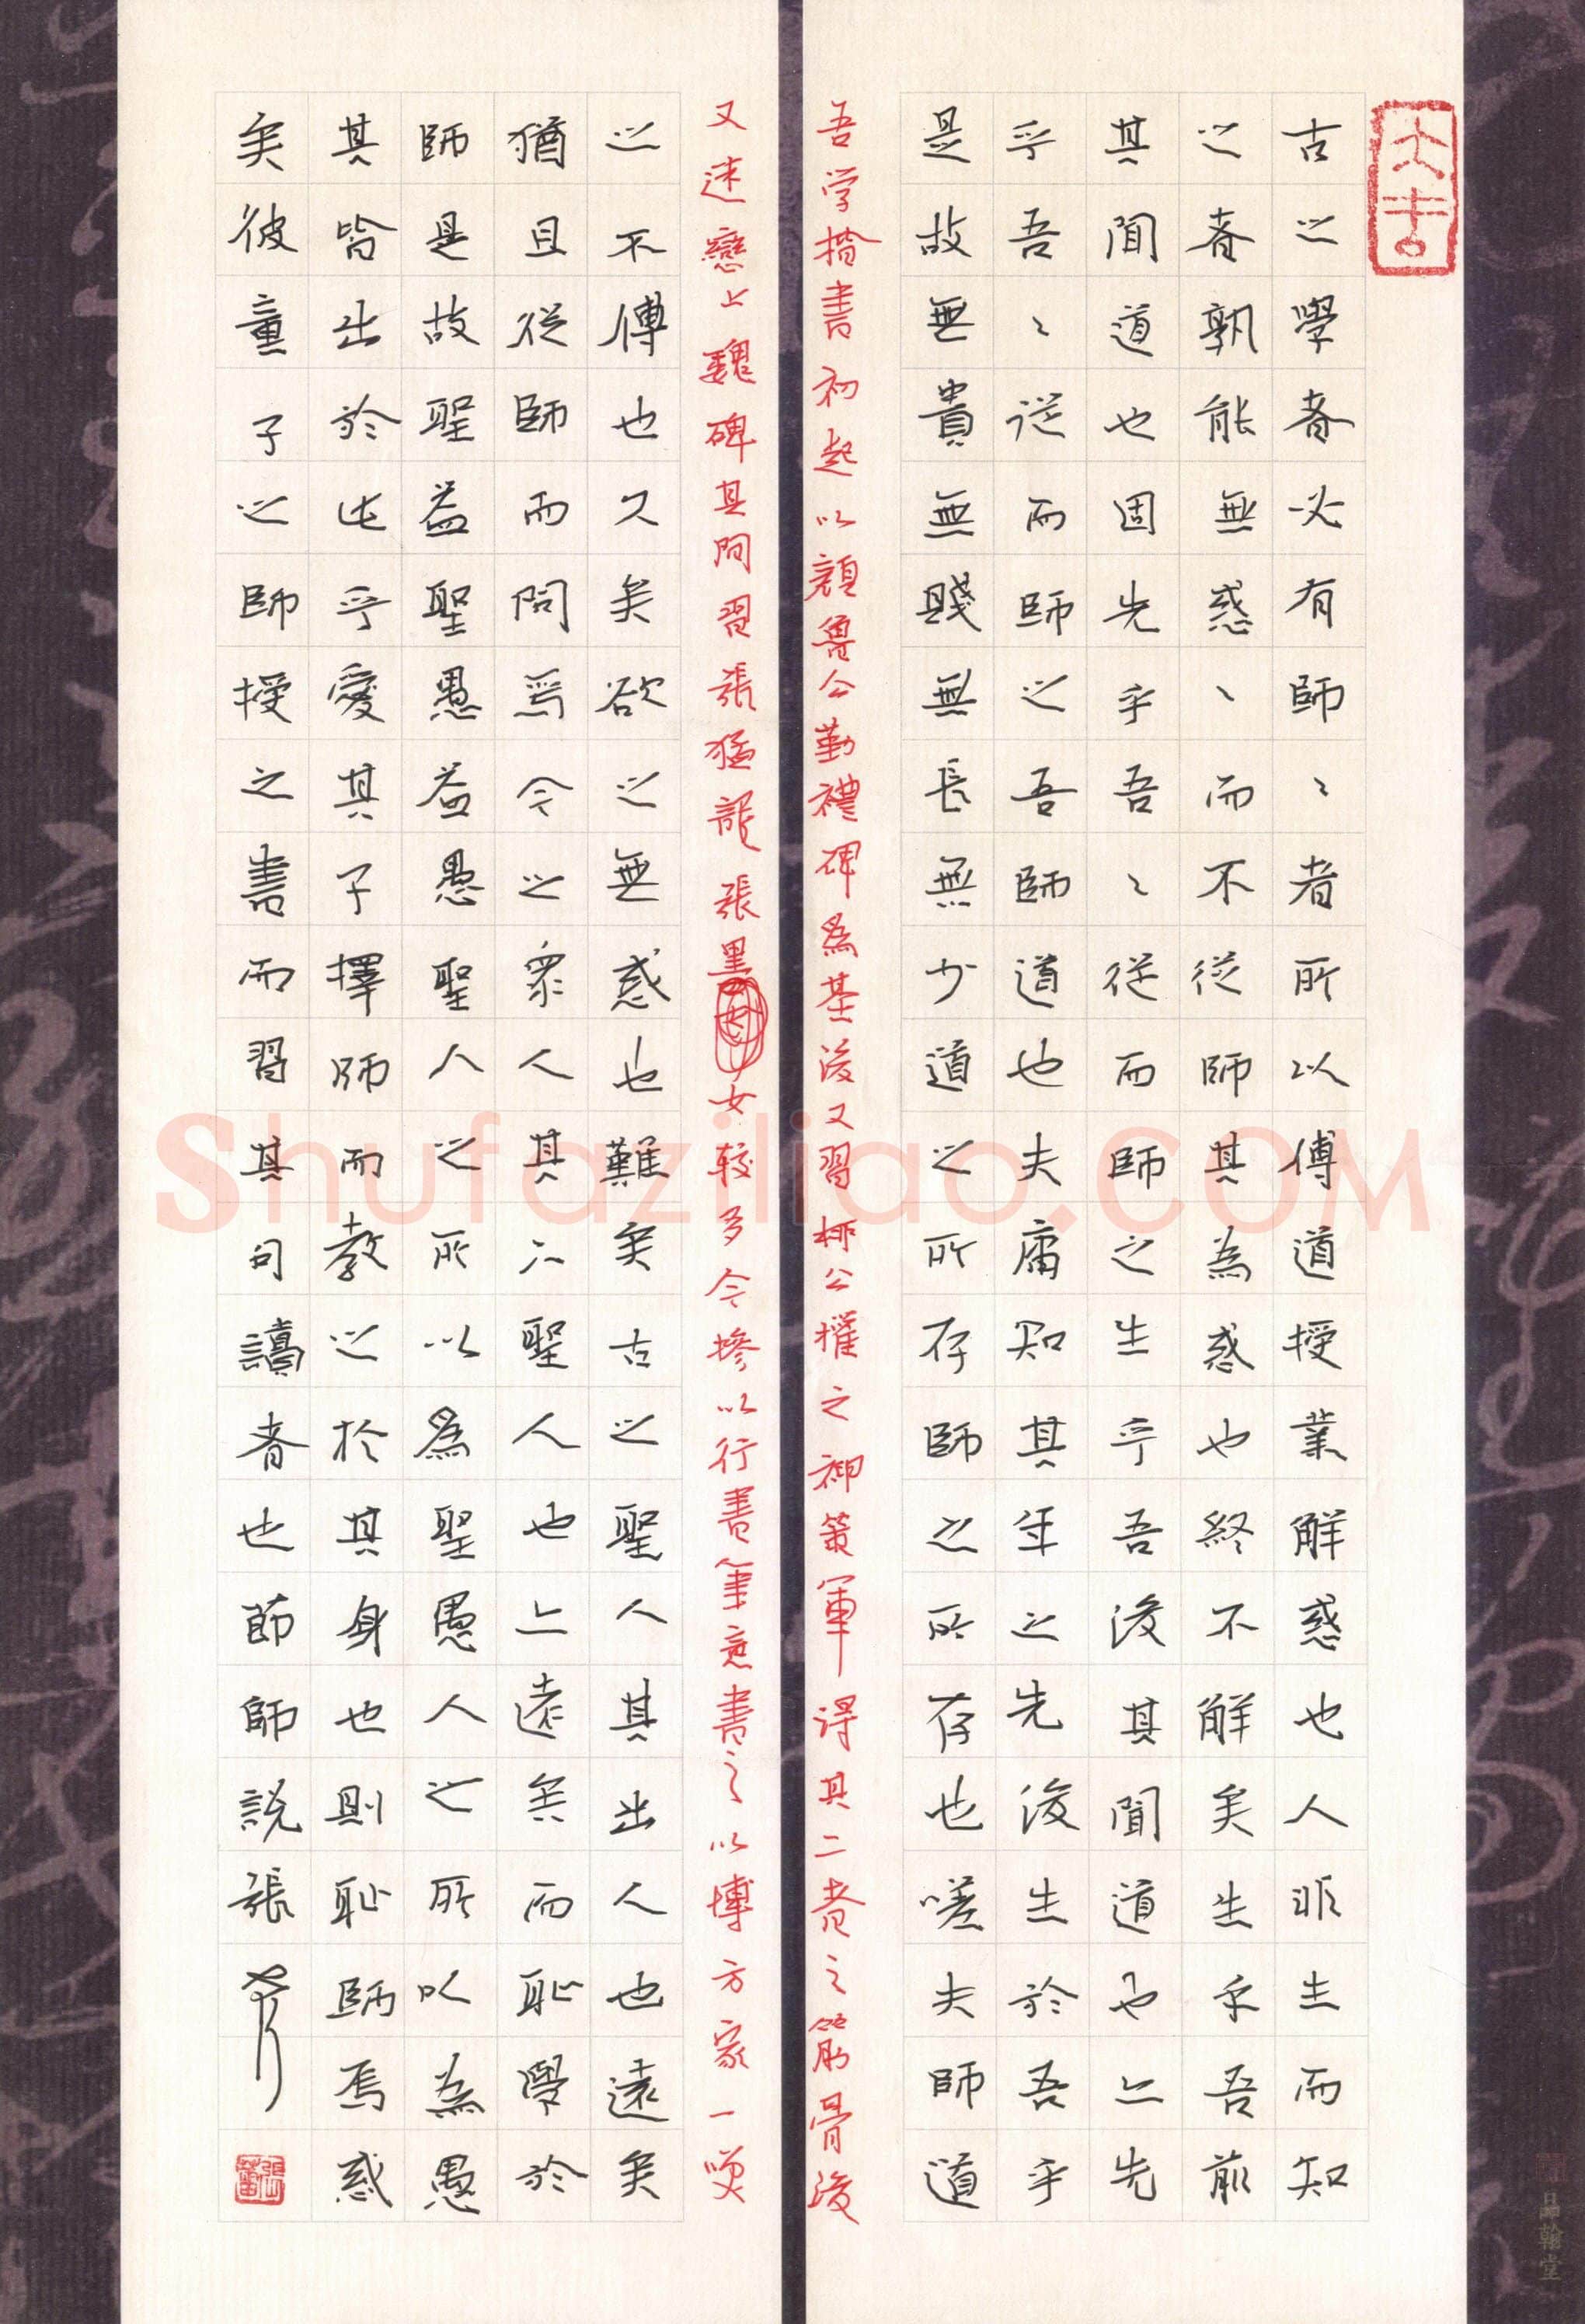 大吉
古之學者必有師〻者所以傳道授業解惑也人非生而知
之者孰能無惑〻而不從師其為惑也終不解矣生乎吾前
其聞道也固先乎吾從而師之生乎吾後其聞道也亦先
乎吾〻從而師之吾師〻道也夫庸知其年之先後生於吾乎
是故無貴無賤無長無少道之所存師之所存也嗟夫師道
吾学楷書初起以顔魯公勤禮碑為基後又習柳公權之神策軍得其二者之筋骨後
又迷戀上魏碑其間習張猛龍張黑女較多今摻以行書筆意書之以博方家一咲
之不傳也久矣欲之無惑也難矣古之聖人其出人也遠矣
猶且從師而問焉今之眾人其下聖人也亦遠矣而恥學於
師是故聖益聖愚益愚聖人之所以為聖愚人之所以為愚
其皆出於此乎愛其子擇師而教之於其身也則恥師焉惑
矣彼童子之師授之書而習其句讀者也節師說張
Shufaziliao.COM
品翰堂